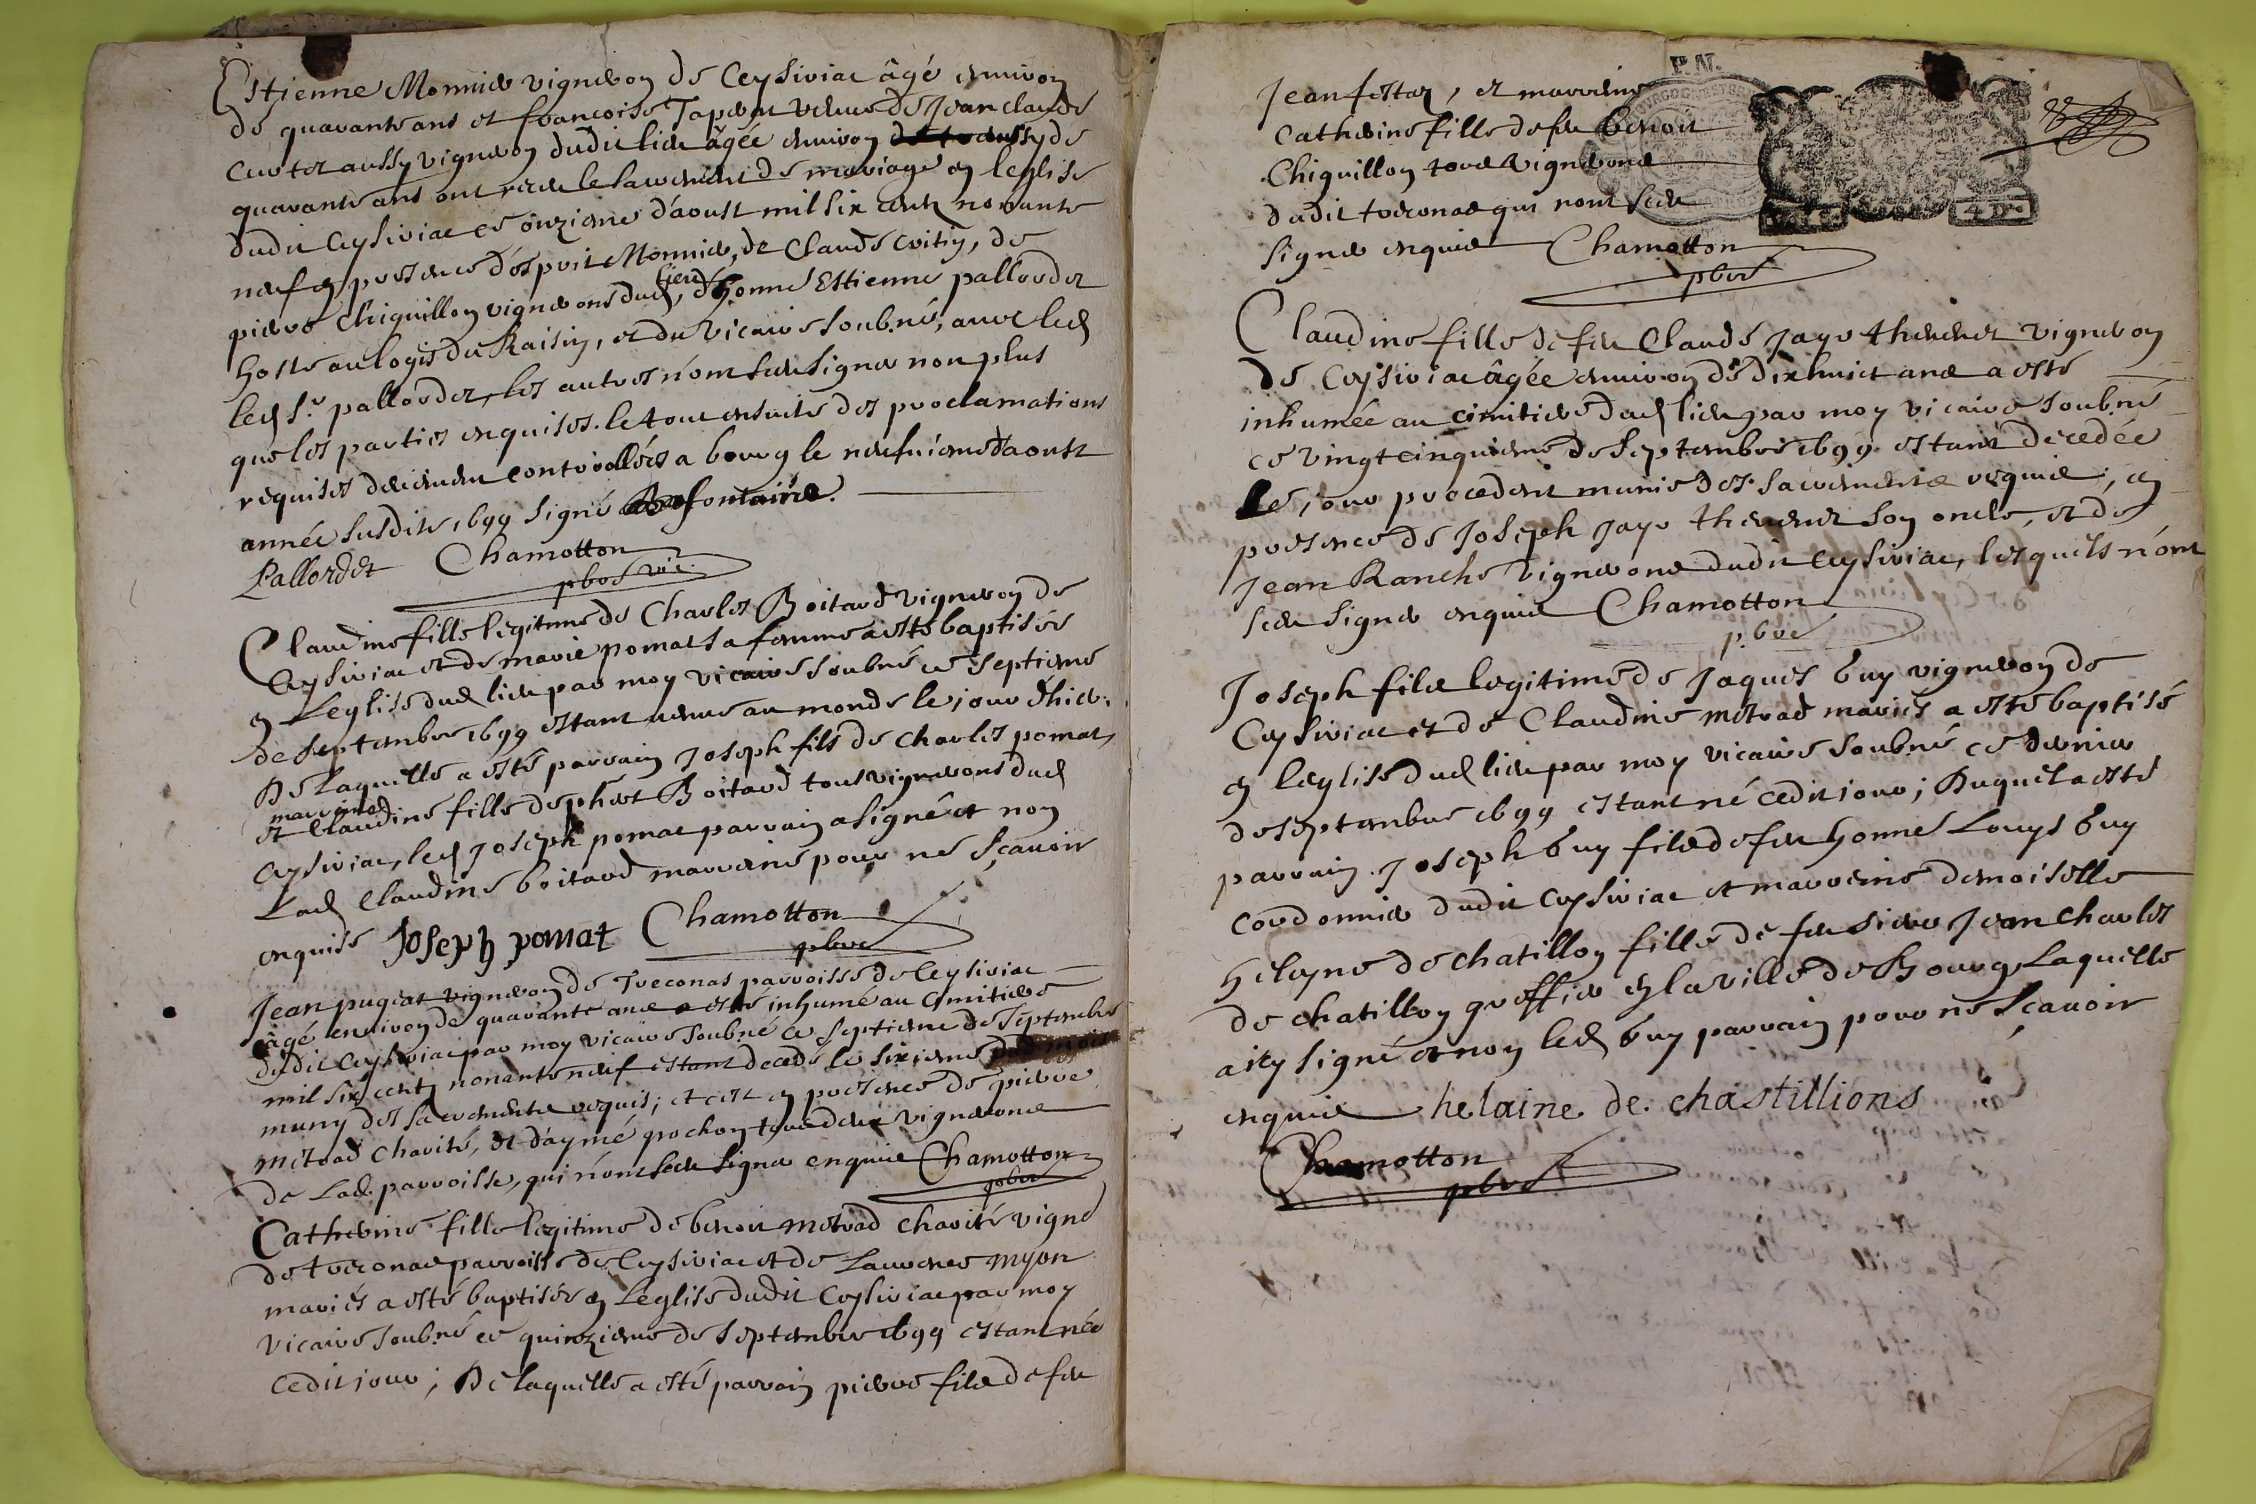 Estienne Monnier vigneron de Ceysiriac âgé environ
de quarante ans et francoise Tapent veuve de Jean claude
Curtet aussy vigneron dudit lieu âgée environ de
quarante ans ont receu le sacrement de mariage en leglise
dudit Ceysiriac ce onzieme d'aoust mil six cents nonante
neuf en presence d'esprit Monnier, de Claude vitin, de
pierre Chiquillon vignerons dud lieu, d'honne Estienne pallordet
hoste au logis du Raisin, et du vicaire soub.né, avec led
led Sr pallordet, les autres n'ont sceu signer non plus
que les parties enquises. le tout ensuite des proclamations
requises deuement controollées a bourg le neufvieme d'aoust
année susdite 1699 signé fontaine.
Pallordet Chamotton
pbre vic.
Claudine fille legitime de Charles Boitard vigneron de
Ceysiriac et de marie pomat sa femme a esté baptisée
en Leglise dud lieu par moy vicaire soubné ce septieme
de septembre 1699 estant venue au monde le jour d'hier.
De laquelle a esté parrain Joseph fils de charles pomat,
marraine
et Claudine fille de Boitard tous vignerons dud
Ceysiriac, led Joseph pomat parrain a signé et non
Lad Claudine boitard marraine pour ne sçavoir
enquise Joseph pomat Chamotton
pbre
Jean pugeat vigneron de Treconas parroisse de Ceysiriac
âgé environ de quarante ans a esté inhumé au Cimitiere
dudit Ceysiriac par moy vicaire soubné ce septieme de septembre
mil six cents nonante neuf estant decedé le sixieme
muny des sacrements requis; et cest en presence de pierre
metrad Charité, et d'aymé grochon tous deux vignerons
de Lad. parroisse, qui n'ont sceu signer enquis Chamotton
pbre
Catherine fille legitime de benoit metrad charité vigne
de treconas parroisse de Ceysiriac et de Laurence myon
mariés a esté baptisée en Leglise dudit Ceysiriac par moy
vicaire soubné ce quinzieme de septembre 1699 estant née
cedit jour; De laquelle a esté parrain pierre fils de feu
Jean festaz, et marraine
Catherine fille de feu benoit
Chiquillon tous vignerons
dudit treconas qui nont sceu
signer enquis Chamotton
pbre
Claudine fille de feu Claude Jayr thevenet vigneron
de Ceysiriac âgée environ de dix huict ans a esté
inhumée au cimitiere dud lieu par moy vicaire soubné
ce vingtcinquieme de septembre 1699 estant decedée
le jour precedent munie des sacrements requis, en
presence de Joseph Jayr thevenet son oncle, et de
Jean Ranche vignerons dudit Ceysiriac, lesquels n'ont
sceu signer enquis Chamotton
pbre
Joseph fils legitime de Jaques buy vigneron de
Ceysiriac et de Claudine metrad mariés a esté baptisé
en leglise dud lieu par moy vicaire soubné ce dernier
de septembre 1699 estant né cedit jour; Duquel a esté
parrain Joseph buy fils de feu honne Louys buy
cordonnier dudit Ceysiriac et marraine demoiselle
helayne de chatillon fille de feu sieur Jean Charles
de chatillon greffier en la ville de Bourg Laquelle
a icy signé et non led buy parrain pour ne sçavoir
enquis helaine de. chastillions
Chamotton
pbre